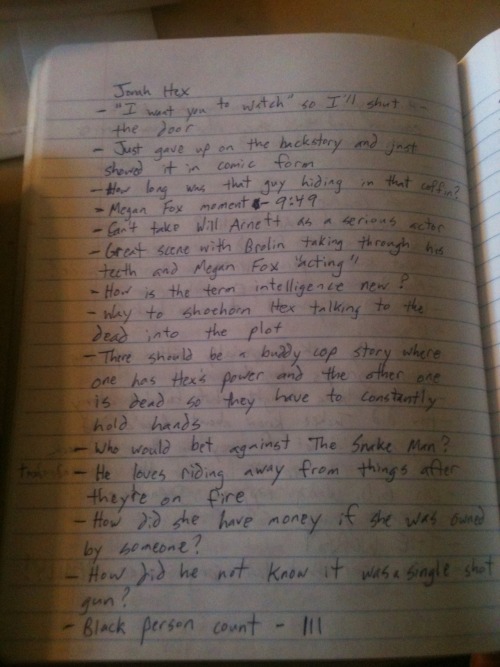 Jonah Hex
- "I want you to watch" so I'll shut
the door
- Just gave up on the backstory and just
showed it in comic form
- How long was that guy hiding in that coffin?
- Megan Fox moment - 9:49
- Can't take Will Arnett as a serious actor
- Great scene with Brolin taking through his
teeth and Megan Fox "acting"
- How is the term intelligence new?
- Way to shoehorn Hex talking to the
dead into the plot
- There should be a buddy cop story where
one has Hex's power and the other one
is dead so they have to constantly
hold hands
- Who would bet against The Snake Man?
- He loves riding away from things after
they're on fire
- How did she have money if she was owned
by someone?
- How did he not know it was a single shot
gun?
- Black person count - III